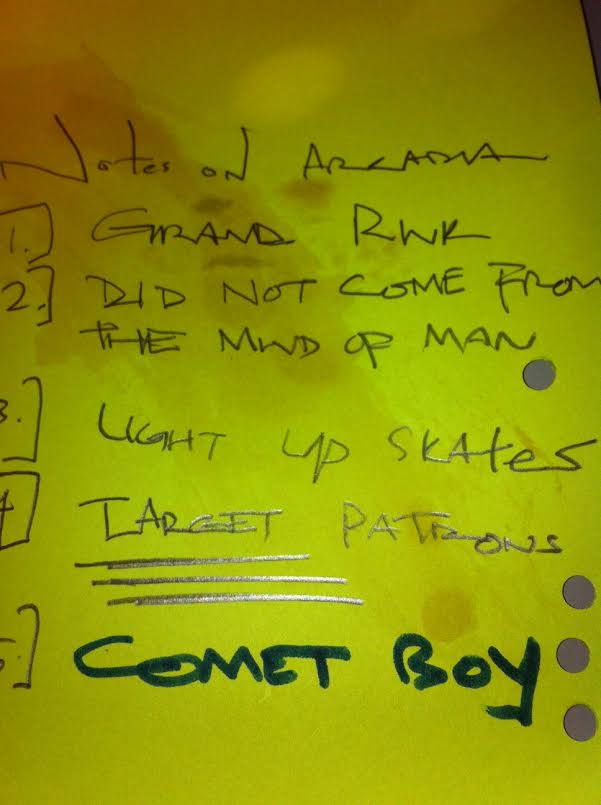 Notes on ARCADIA
1.] GRAND RINK
2.] DID NOT COME FROM
THE MIND OF MAN
3.] LIGHT UP SKATES
4] TARGET PATRONS
5.] COMET BOY